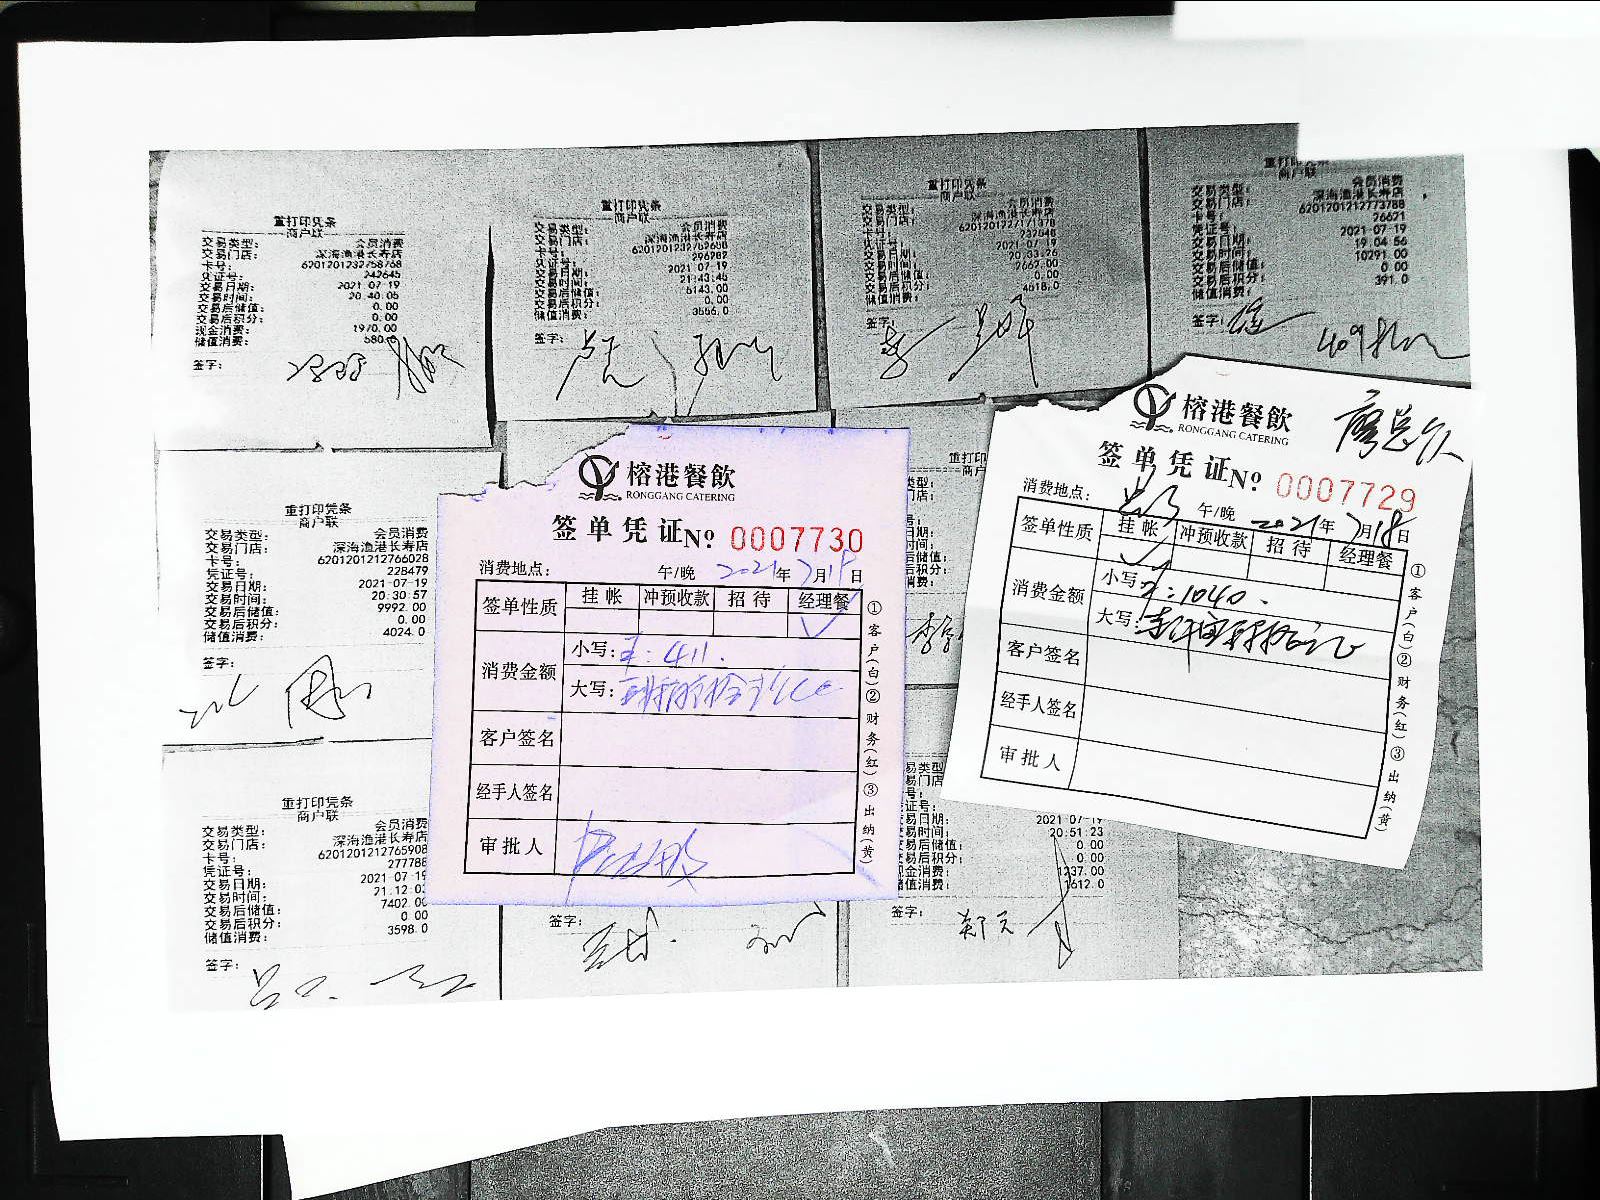 重打印凭条
商户联
交易类型： 会员消费
交易门店： 深海渔港长寿店
卡号： 6201201232758768
凭证号： 242645
交易日期： 2021-07-19
交易时间： 20:40:05
交易后储值： 0.00
交易后积分： 0.00
现金消费： 1970.00
储值消费： 580.0
签字：
重打印凭条
商户联
交易类型： 会员消费
交易门店： 深海渔港长寿店
卡号： 6201201232762658
凭证号： 296282
交易日期： 2021-07-19
交易时间： 21:43:45
交易后储值： 6143.00
交易后积分： 0.00
储值消费： 3556.0
签字：
重打印凭条
商户联
交易类型： 会员消费
交易门店： 深海渔港长寿店
卡号：
凭证号： 237848
交易日期： 2021-07-19
交易时间： 20:33:26
交易后储值： 2667.00
交易后积分： 0.00
储值消费： 4518.0
签字： 李
重打印凭条
商户联
交易类型： 会员消费
交易门店： 深海渔港长寿店
卡号： 6201201212773788
凭证号： 26621
交易日期： 2021-07-19
交易时间： 19:04:56
交易后储值： 10291.00
交易后积分： 0.00
储值消费： 391.0
签字：
重打印凭条
商户联
交易类型： 会员消费
交易门店： 深海渔港长寿店
卡号： 6201201212766028
凭证号： 228479
交易日期： 2021-07-19
交易时间： 20:30:57
交易后储值： 9992.00
交易后积分： 0.00
储值消费： 4024.0
签字：
重打印凭条
商户联
交易类型： 会员消费
交易门店： 深海渔港长寿店
卡号： 6201201212765908
凭证号： 277788
交易日期： 2021-07-19
交易时间： 21:12:03
交易后储值： 7402.00
交易后积分： 0.00
储值消费： 3598.0
签字：
榕港餐飲
RONGGANG CATERING
签单凭证 No 0007730
消费地点： 午/晚 2021年7月18日
签单性质 挂帐 冲预收款 招待 经理餐
消费金额 小写：￥：411.
大写：
客户签名
经手人签名
审批人
①客户(白)②财务(红)③出纳(黄)
榕港餐飲
RONGGANG CATERING
廖总
签单凭证 No 0007729
消费地点： 午/晚 2021年7月18日
签单性质 挂帐 冲预收款 招待 经理餐
消费金额 小写：￥：1040.
大写：
客户签名
经手人签名
审批人
①客户(白)②财务(红)③出纳(黄)
重打印
商户
签字：
2021-07-19
交易时间： 20:51:23
易后储值： 0.00
易后积分： 0.00
金消费： 1237.00
值消费： 1612.0
签字：